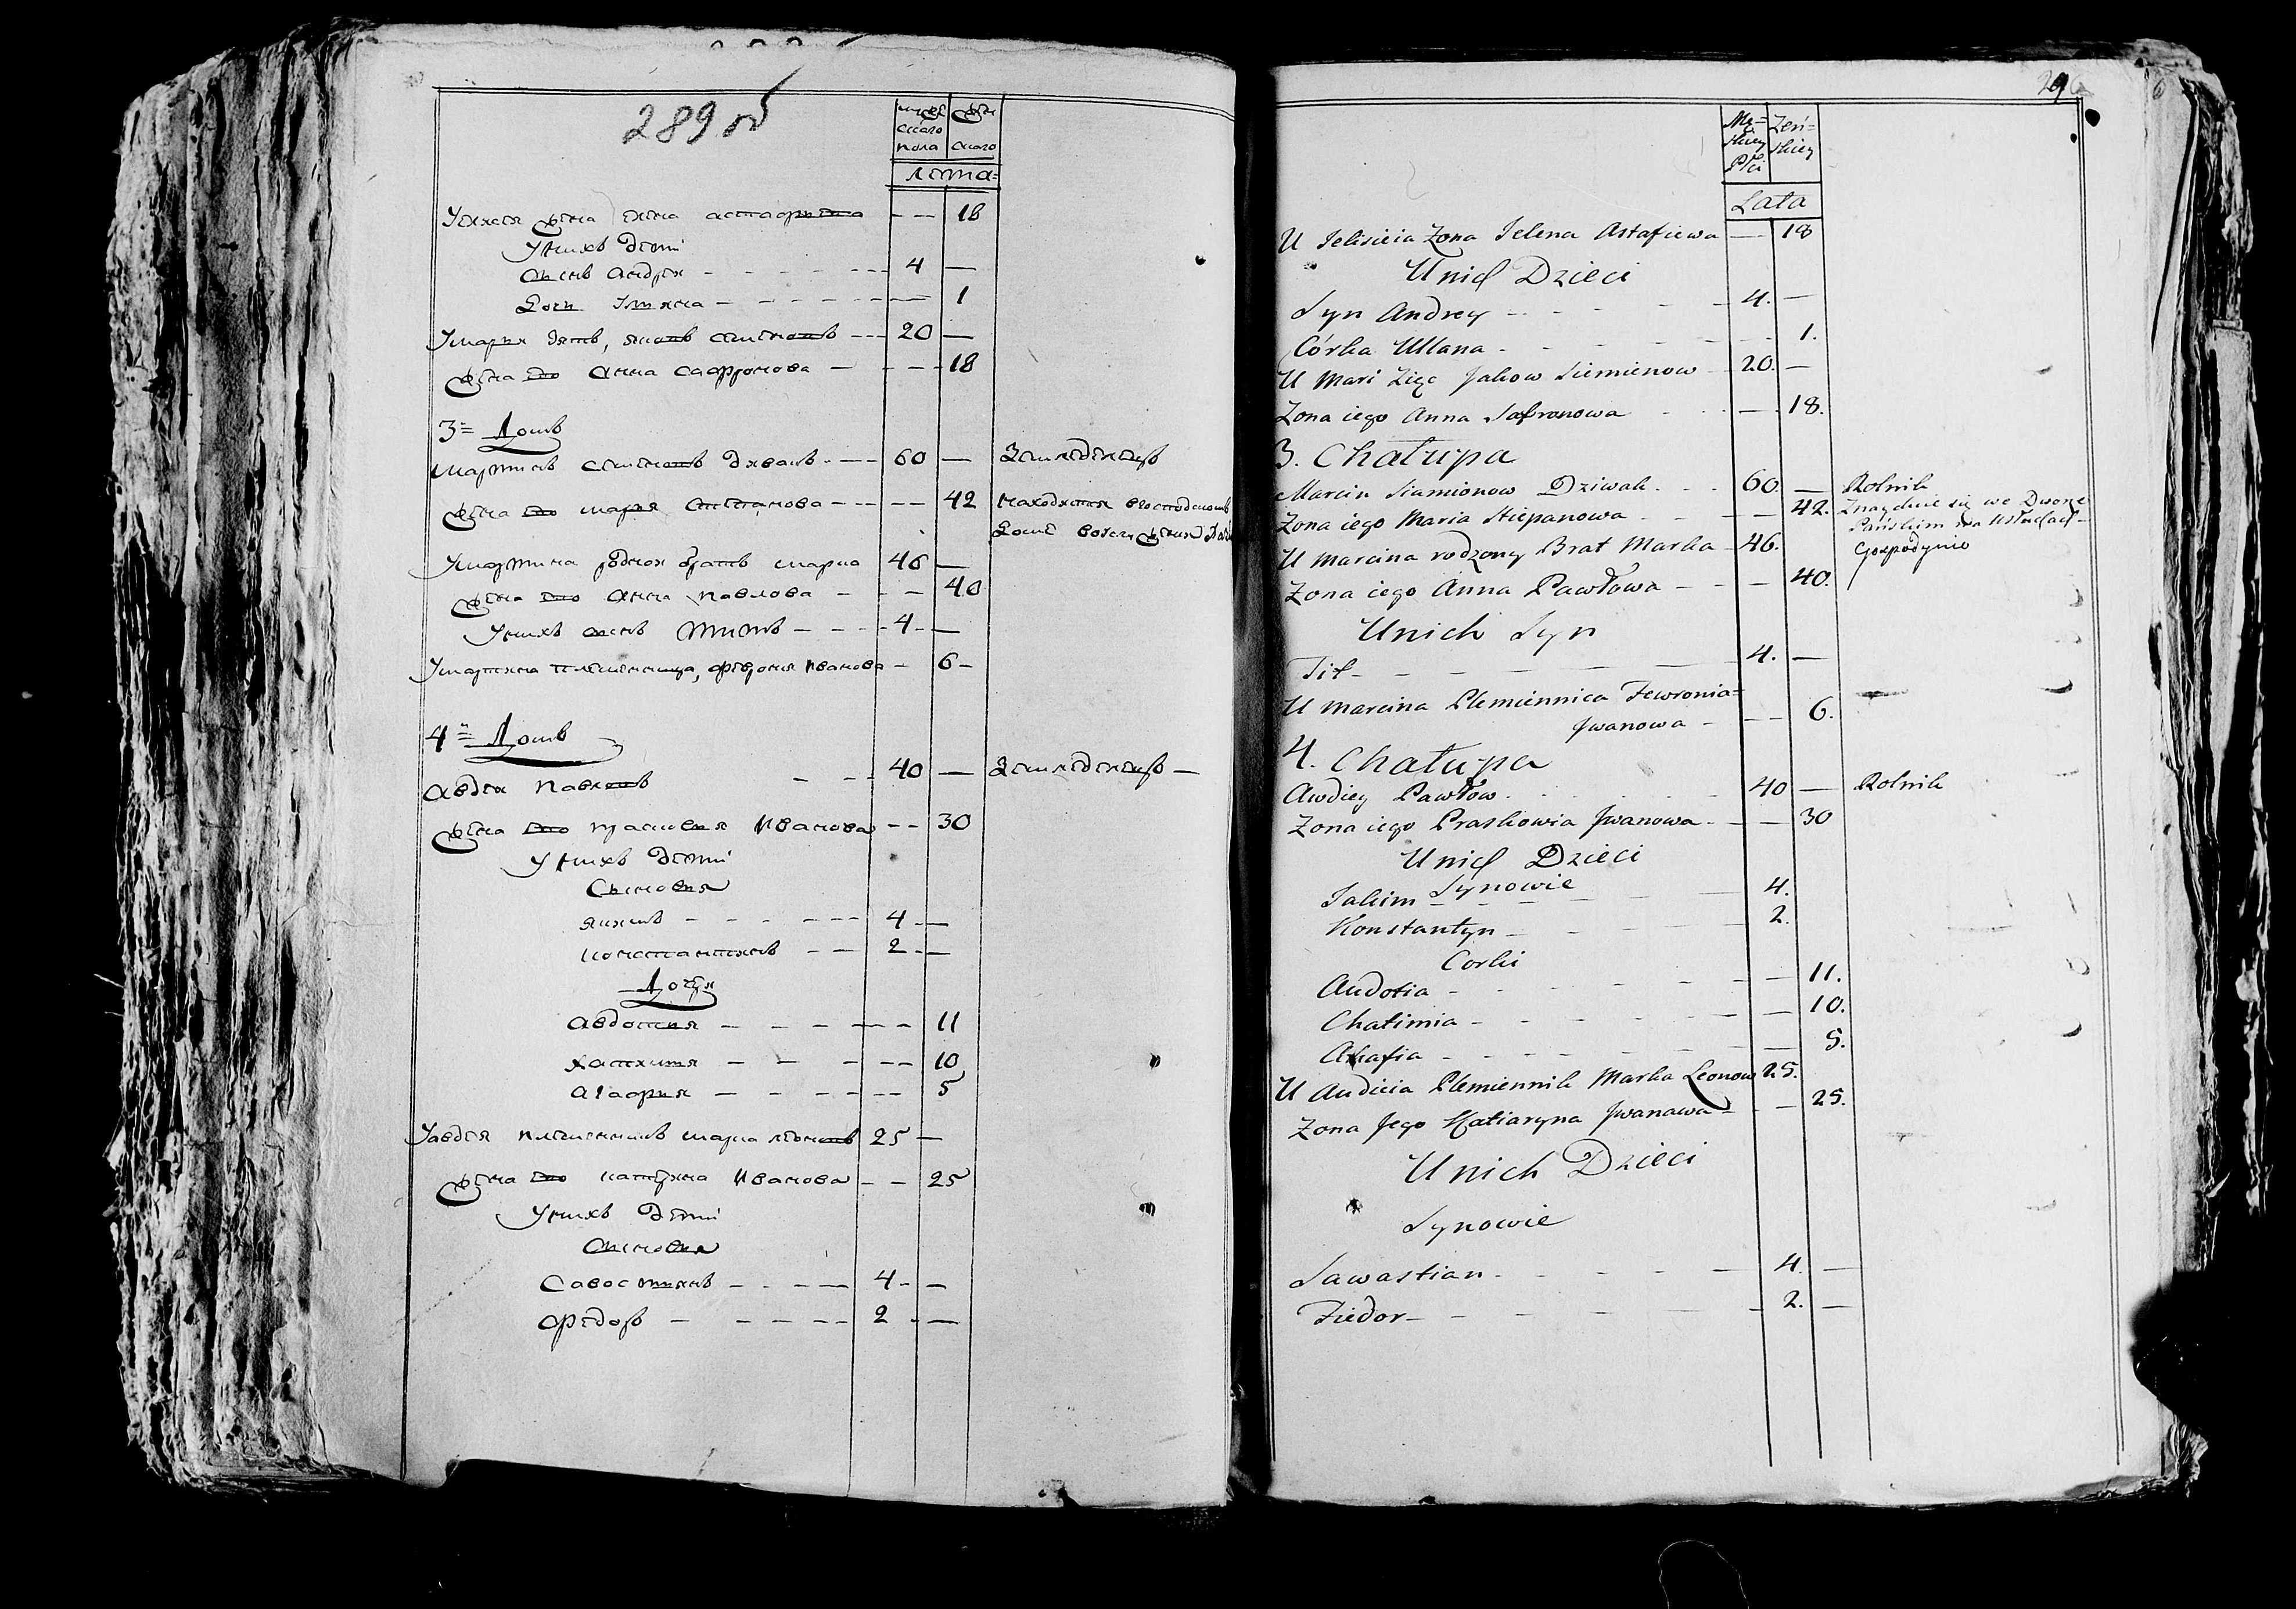 289 об
мужеска­го пола
женскаго
лѣта
Уелисея жена елена астафьева -- 18
У нихъ дети
сынъ андрей 4 —
Дочь Ульяна — 1
Умарка зять, яковъ семеновъ 20 —
жена его анна сафронова — 18
3 = Домъ
мартинъ семеновъ дзвакъ 60 — Земледелецъ
жена его марья степанова — 42 находятся вгосподскомъ
Доме
Умартина родной братъ марко 46 —
жена его анна павлова — 40
У нихъ сынъ титъ 4 —
Умартина племенница, феврония Иванова — 6 —
4 = Домъ
авдей павловъ 40 — Земледелецъ —
жена его прасковья Иванова — 30
У нихъ дети
Сыновья
якимъ 4 —
константинъ 2 —
Дочери
авдотья 11
хатимья 10
агафия 5
Уавдея племенникъ марко леоновъ 25 —
жена его катерина Иванова — 25
У нихъ дети
Сыновья
Савостиянъ 4 —
федоръ 2 —
290
Mę=skiey Płci
Zeń=skiey
Lata
U Jelisieia Zona Jelena Astafiewa — 18
Unich Dzieci
Syn Andrey 4. —
Córka Ullana 1.
U Mari Zięc Jakow Siemienow 20. —
Zona iego Anna Safronowa — 18.
3. Chałupa
Marcin Siamionow Dziwak 60. — Rolnik
Zona iego Maria Stiepanowa — 42. Znayduie się we Dworze
Pańskim na Usługach
U Marcina rodzony Brat Marka 46. Gospodynio
Zona iego Anna Pawłowa — 40.
Unich Syn
Tit 4. —
U Marcina Plemiennica Fewronia=
Jwanowa — 6.
4. Chałupa
Awdiey Pawłow 40 — Rolnik
Zona iego Praskowia Jwanowa — 30
Unich Dzieci
Synowie
Jakim 4.
Konstantyn 2.
Corki
Audotia — 11.
Chatimia — 10.
Ahafia — 5.
U Audieia Plemiennik Marka Leonow 25.
Zona Jego Katiaryna Jwanawa — 25.
Unich Dzieci
Synowie
Sawastian 4. —
Fiedor 2. —